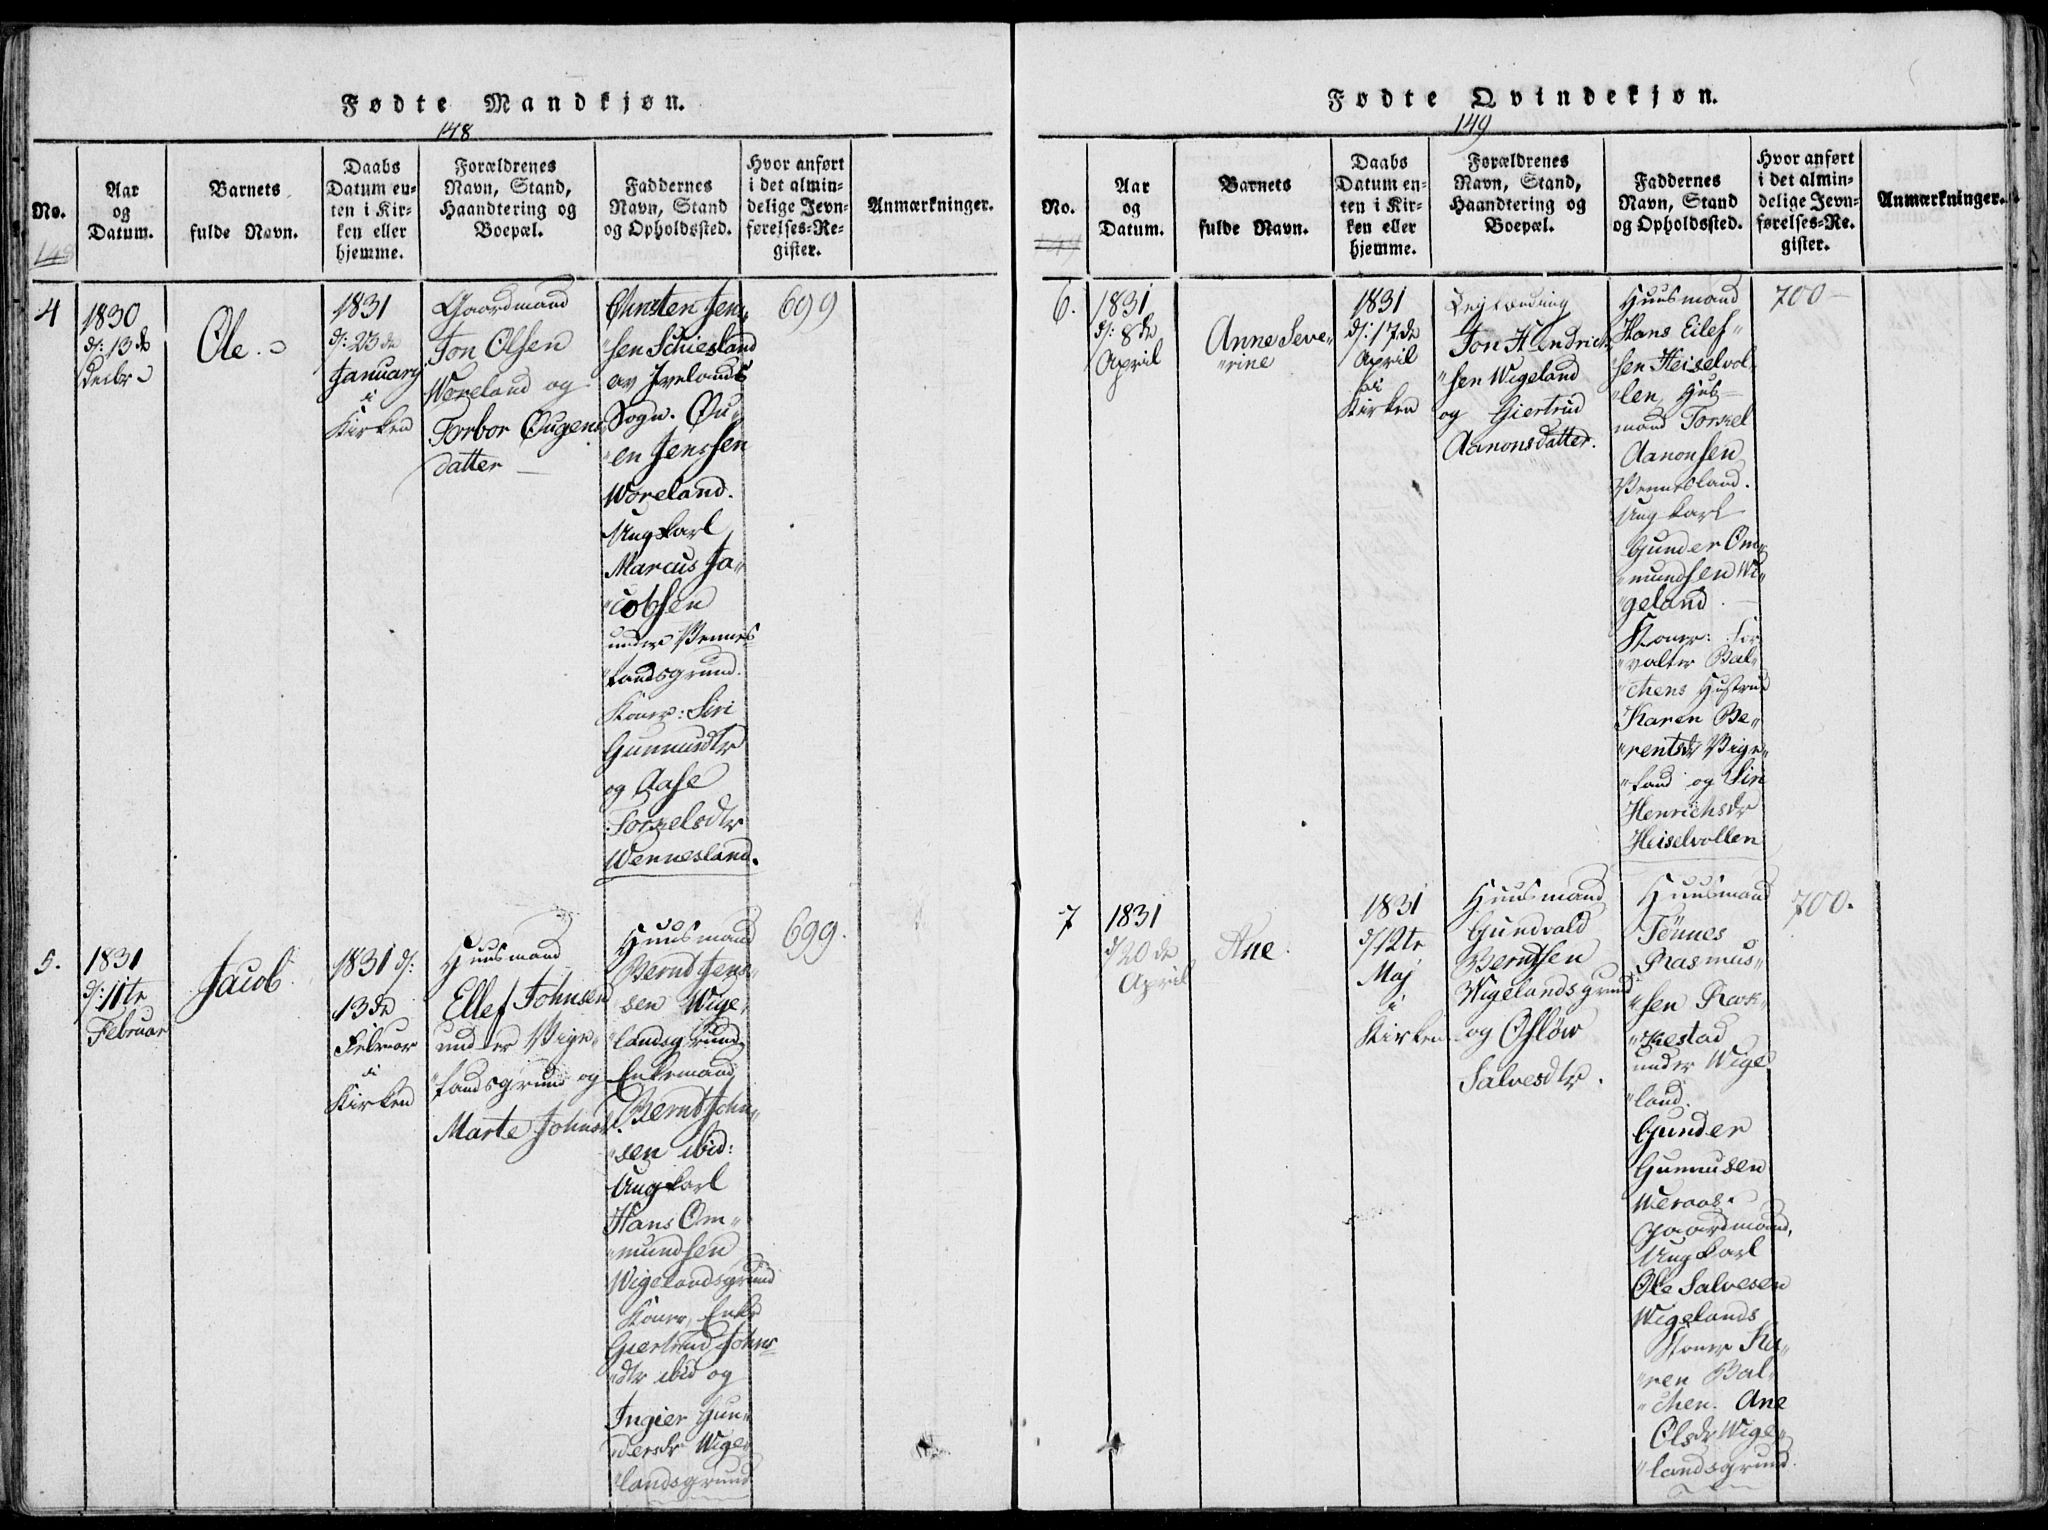 Fødte Mandkjøn.
148
No.
148
Aar
og
Datum.
Barnets
fulde Navn.
Daabs
Datum en-
ten i Kir-
ken eller
hjemme.
Forældrenes
Navn, Stand,
Haandtering og
Boepæl.
Faddernes
Navn, Stand
og Opholdssted.
Hvor anført
i det almin-
delige Jevn-
førelses-Re-
gister.
Anmærkninger.
4
1830
d: 13de
Decbr
Ole.
1831
d: 23de
January
i
Kirken
Gaardmand
Jon Olsen
Woreland og
Torbor Ougens
datter
Christen Jen
"sen Schiesland
av Ivelands
Sogn. Ou"
"en Jenssen
Woreland.
Ungkarl
Marcus Ja"
"cobsen
under Vennes
"landsgrund.
Koner: Siri
Gunnusdtr
og Aase
Torkelsdtr
Wennesland.
699
5.
1831
d: 11te
Februar
Jacob.
1831 d:
13de
Februar
i
Kirken
Huusmand
Ellef Johnsen
under Vige"
"landsgrund og
Marte Johnsd.
Huusmand
Bernt Jens"
sen Wige"
"landsgrund
Enkemand
Bernt John"
"sen ibid:
Ungkarl
Hans Om"
"mundsen
Wigelandsgrund
Koner, Enke
Giertrud Johns
"dtr ibid og
Ingier Gun"
"dersdr Wige"
"landsgrund
699.
Fødte Qvindekjøn.
149
No.
149
Aar
og
Datum.
Barnets
fulde Navn.
Daabs
Datum en-
ten i Kir-
ken eller
hjemme.
Forældrenes
Navn, Stand,
Haandtering og
Boepæl.
Faddernes
Navn, Stand
og Opholdssted.
Hvor anført
i det almin-
delige Jevn-
førelses-Re-
gister.
Anmærkninger.
6.
1831
d: 8de
April
Anne Seve"
"rine
1831
d: 17de
April
i
Kirken
Jon Hendrich
"sen Wigeland
og Giertrud
Aanonsdatter.
Huusmand
Hans Eilef"
sen Heiselvol"
"len, Hus"
mand Torkel
Aanonsen
Vennesland.
Ungkarl
Gunder Om"
"mundsen Wi"
"geland.
Koner: For
"valter Bal"
"chens Hustrue
Karen Be"
"rentsdr Vige"
"land og Siri
Henrichsdr
Heiselvollen
700
7
1831
d/20de
April
Ane.
1831
d/12te
Maj
i
Kirken
Huusmand
Gundvald
Berntsen
Wigelandsgrund
og Osløw
Salvesdtr.
Huusmand
Tönnes
Rasmus"
"sen Rok"
"kestad
under Wige
"land.
Gunder
Gunnusen
Weraas
Gaardmand,
Ungkarl
Ole Salvesen
Wigelands
Koner Ka"
"ren Bal"
"chen. Ane
Olsdr Wige"
"landsgrund.
700.